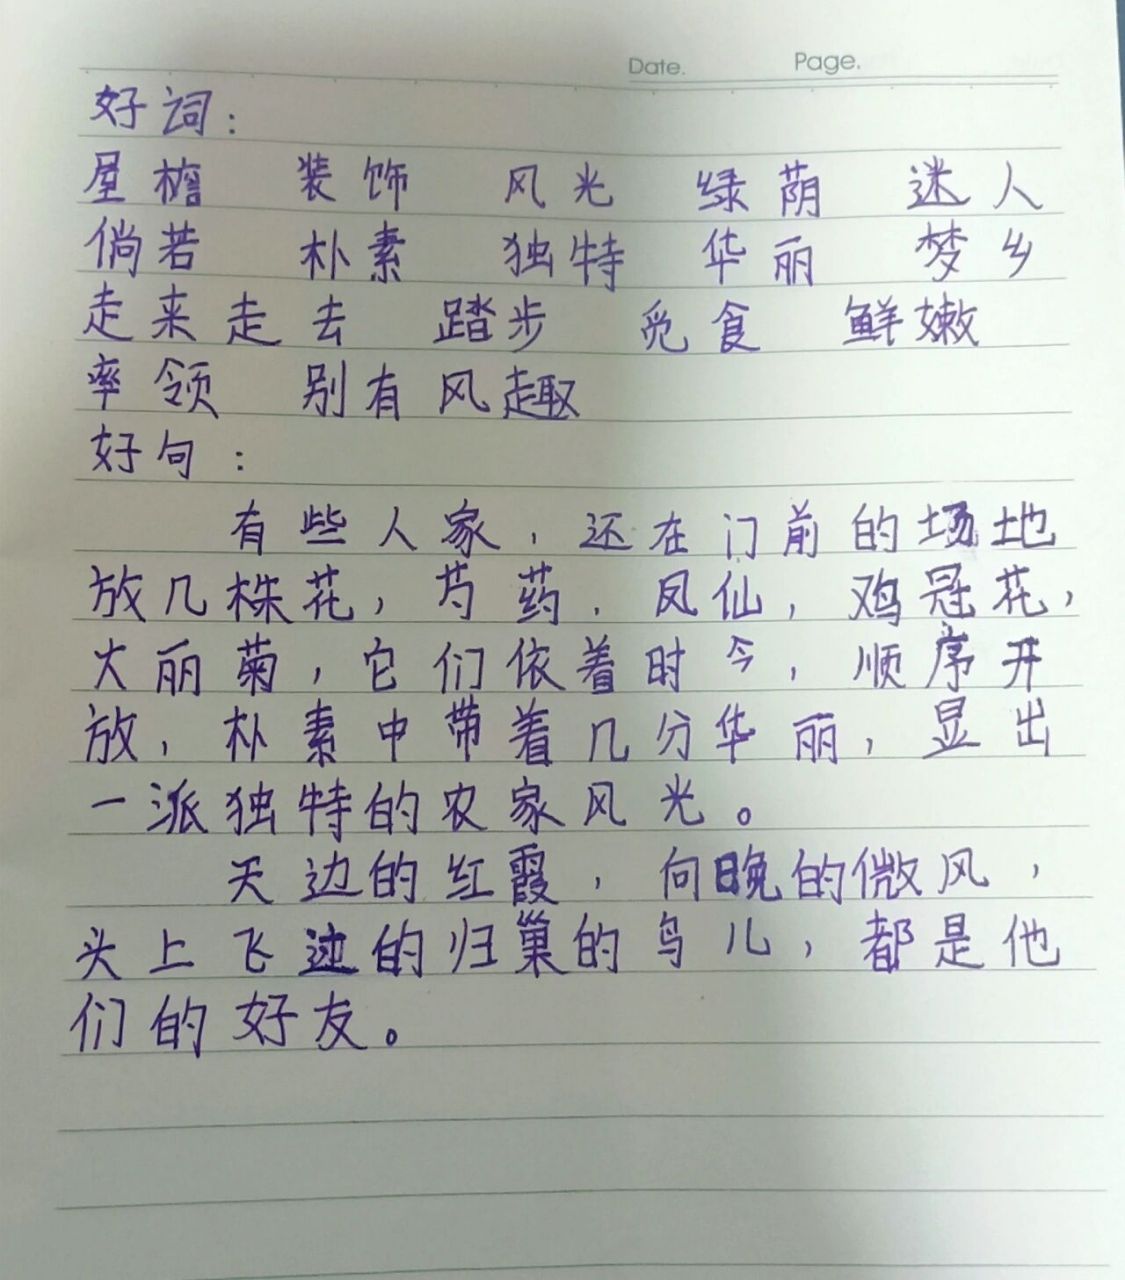 Date. Page.
好词：
屋檐 装饰 风光 绿荫 迷人
倘若 朴素 独特 华丽 梦乡
走来走去 踏步 觅食 鲜嫩
率领 别有风趣
好句：
有些人家，还在门前的场地
放几株花，芍药，凤仙，鸡冠花，
大丽菊，它们依着时今，顺序开
放，朴素中带着几分华丽，显出
一派独特的农家风光。
天边的红霞，向晚的微风，
头上飞过的归巢的鸟儿，都是他
们的好友。